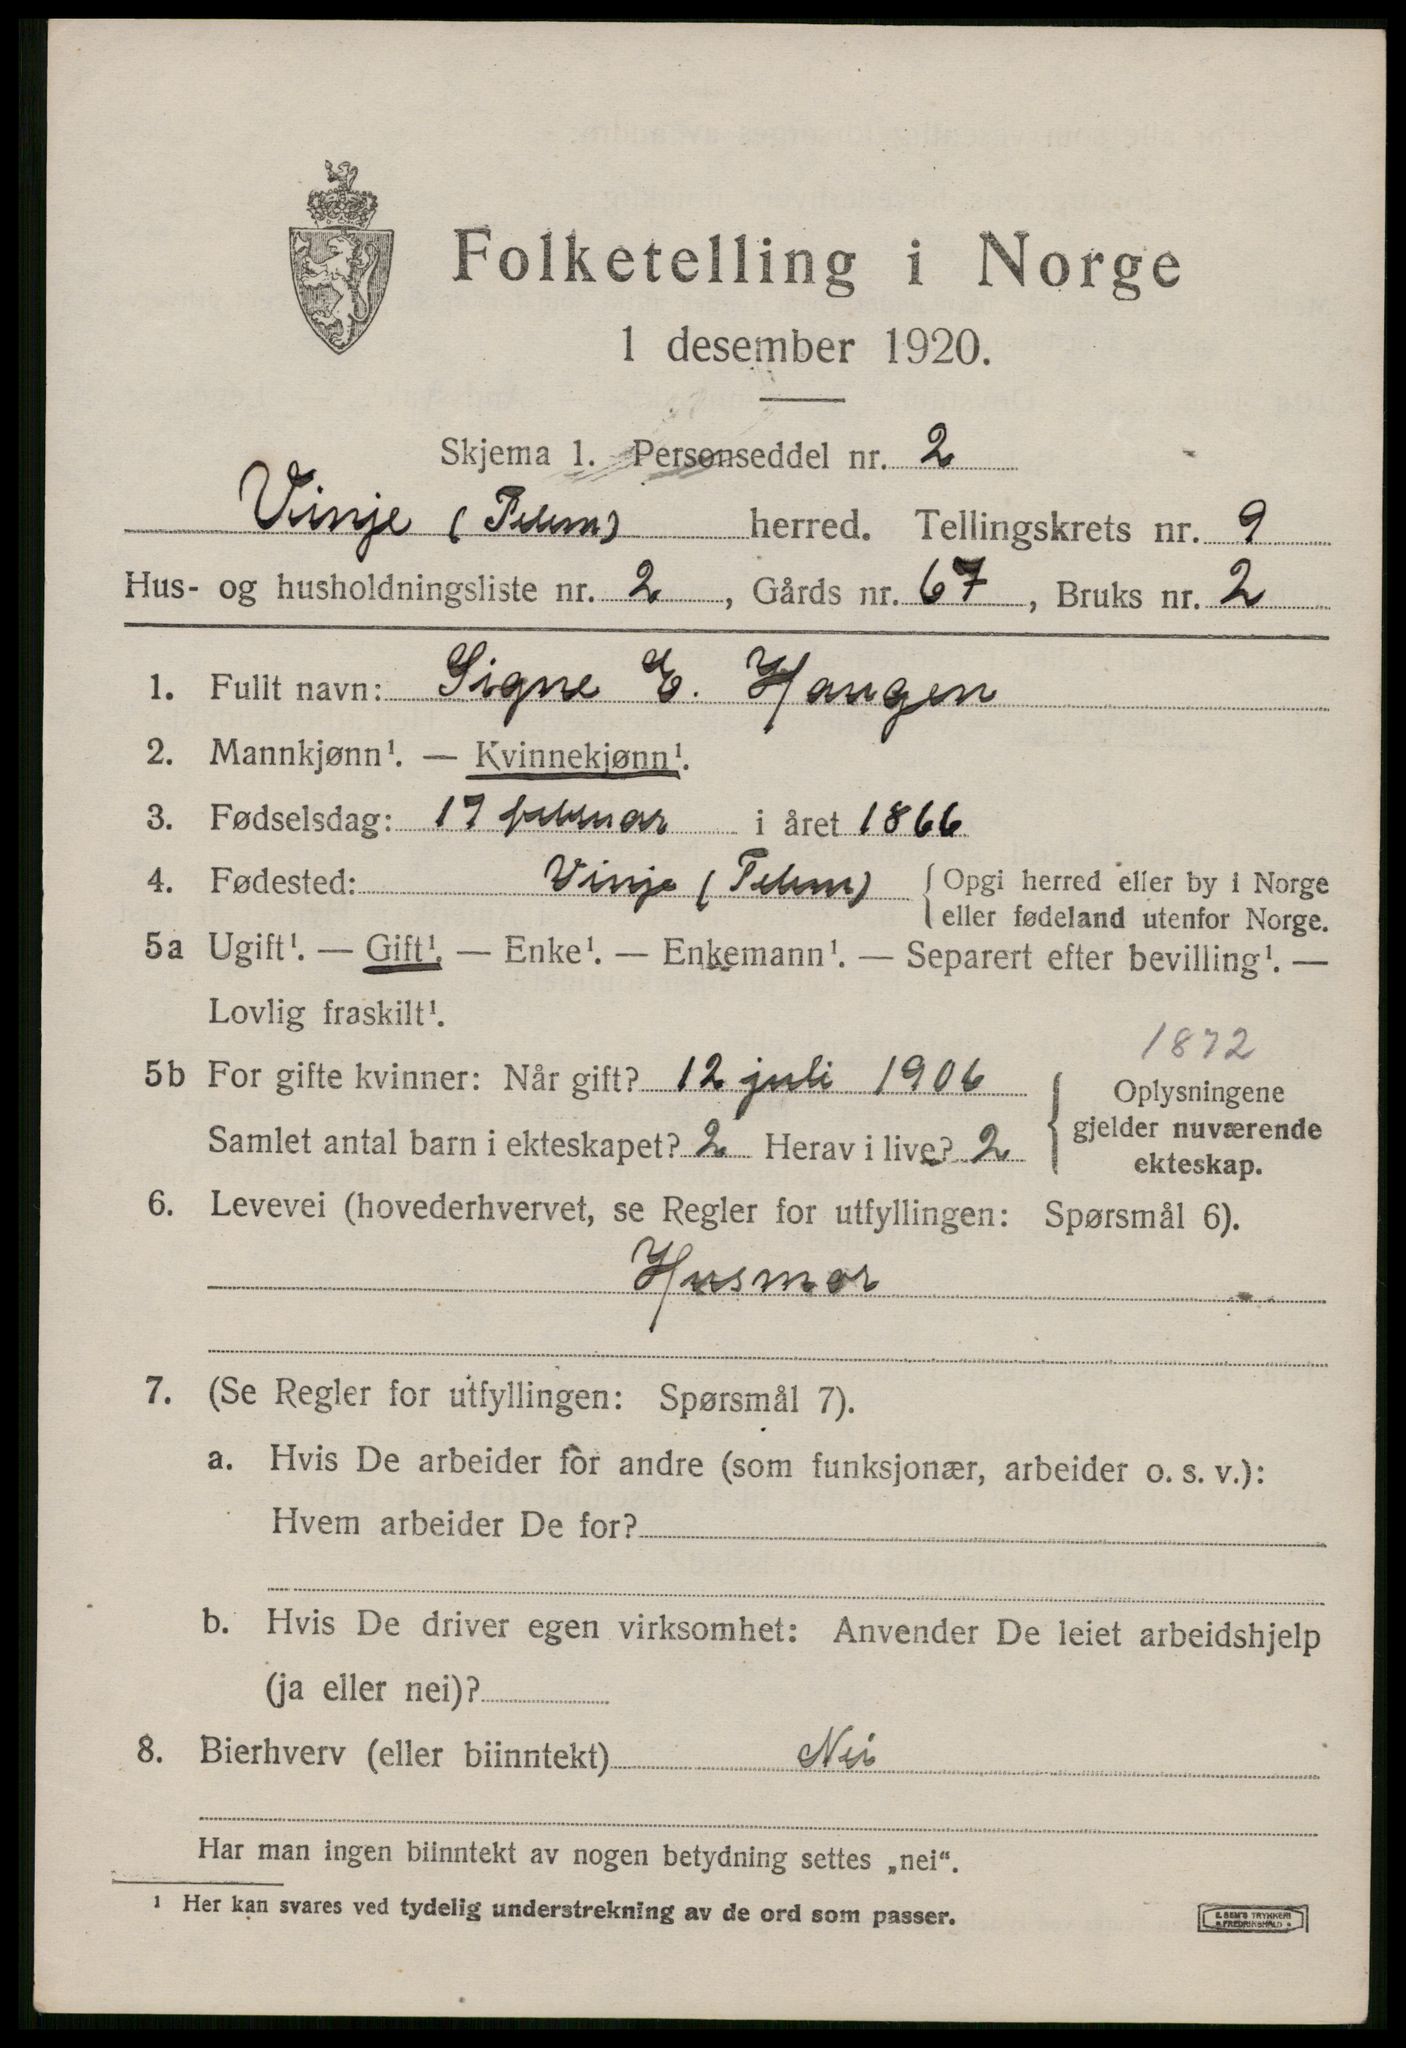 Folketelling i Norge
1 desember 1920.
Skjema 1. Personseddel nr. 2
Vinje (Telem) herred. Tellingskrets nr. 9
Hus- og husholdningsliste nr. 2, Gårds nr. 67, Bruks nr. 2
1. Fullt navn: Signe E. Haugen
2. Mannkjønn¹. — Kvinnekjønn¹.
3. Fødselsdag: 17 februar i året 1866
4. Fødested: Vinje (Telem) { Opgi herred eller by i Norge
eller fødeland utenfor Norge.
5a Ugift¹. — Gift¹. — Enke¹. — Enkemann¹. — Separert efter bevilling¹. —
Lovlig fraskilt¹.
1872
5b For gifte kvinner: Når gift? 12 juli 1906
Samlet antal barn i ekteskapet? 2 Herav i live? 2
{ Oplysningene
gjelder nuværende
ekteskap.
6. Levevei (hovederhvervet, se Regler for utfyllingen: Spørsmål 6).
Husmor
7. (Se Regler for utfyllingen: Spørsmål 7).
a. Hvis De arbeider for andre (som funksjonær, arbeider o. s. v.):
Hvem arbeider De for?
b. Hvis De driver egen virksomhet: Anvender De leiet arbeidshjelp
(ja eller nei)?
8. Bierhverv (eller biinntekt) Nei
Har man ingen biinntekt av nogen betydning settes „nei“.
¹ Her kan svares ved tydelig understrekning av de ord som passer.
E. SEM'S TRYKKERI
FREDRIKSHALD